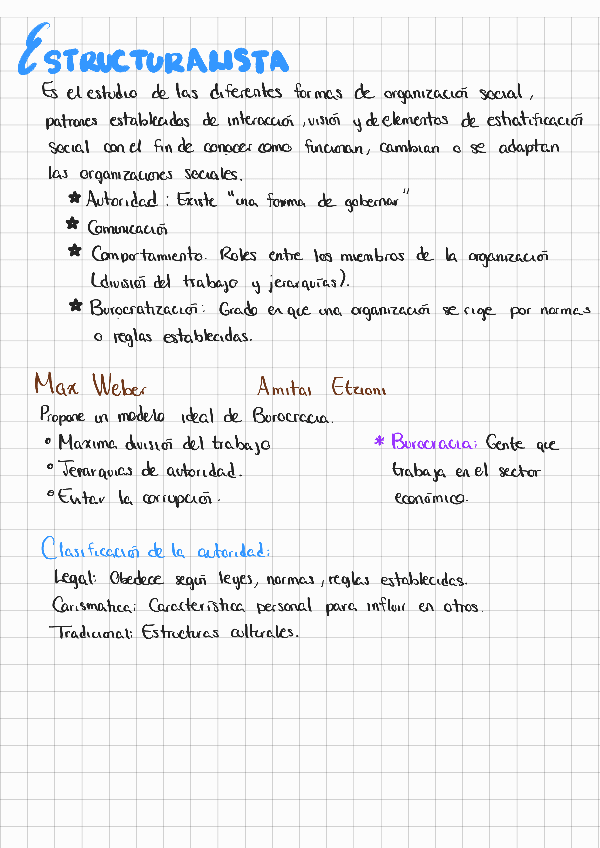 ESTRUCTURALISTA
Es el estudio de las diferentes formas de organización social,
patrones establecidos de interacción, visión y de elementos de estratificación
social con el fin de conocer como funcionan, cambian o se adaptan
las organizaciones sociales.
★ Autoridad: Existe "una forma de gobernar"
★ Comunicación
★ Comportamiento. Roles entre los miembros de la organización
(división del trabajo y jerarquías).
★ Burocratización: Grado en que una organización se rige por normas
o reglas establecidas.
Max Weber Amitai Etzioni
Propone un modelo ideal de Burocracia.
° Maxima división del trabajo
° Jerarquias de autoridad.
° Evitar la corrupción.
* Burocracia: Gente que
trabaja en el sector
económico.
Clasificación de la autoridad:
Legal: Obedece según leyes, normas, reglas establecidas.
Carismatica: Característica personal para influir en otros.
Tradicional: Estructuras culturales.